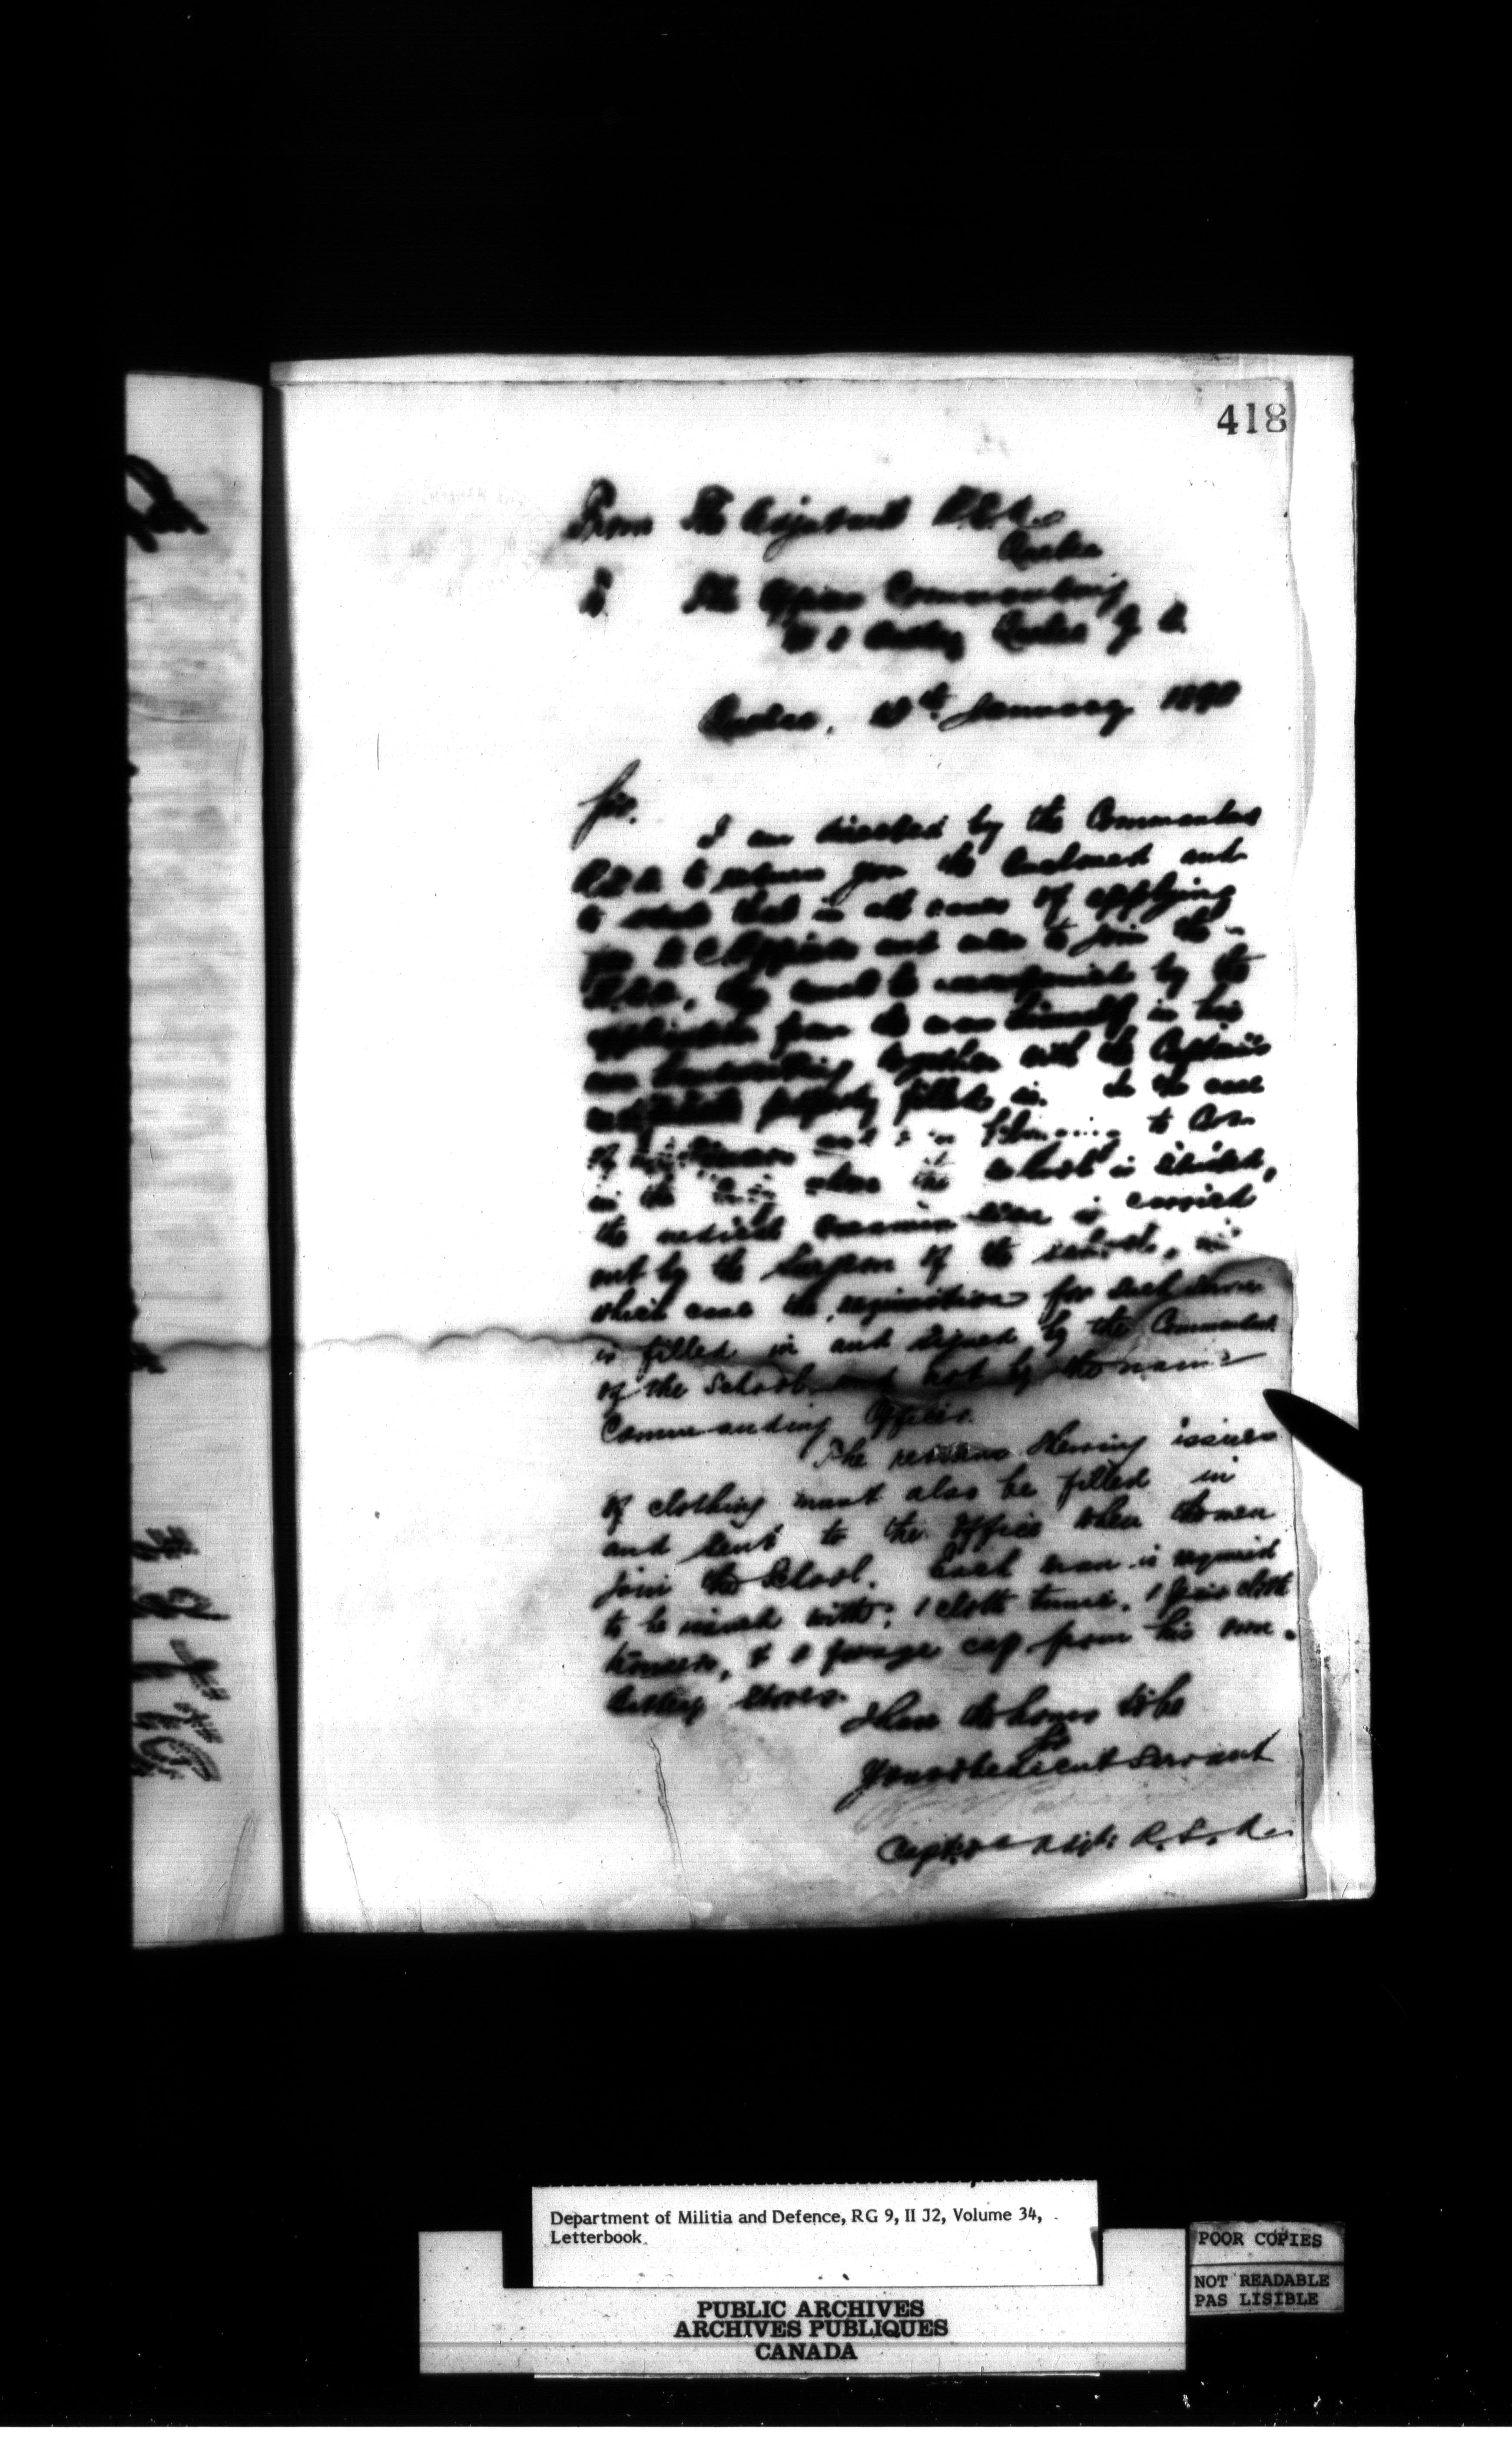 418
From The Adjutant R.S.A.
Quebec
To The Officer Commanding
No 1 Battery Quebec G. A.
Quebec, January 1890
Sir.
I am directed by the Commandant
R.S.A. to return you the enclosed and
to state that in all cases of applying
for N.C. Officers and men to join the
R.S.A., they must be accompanied by the
application from the man himself in his
own handwriting together with the Captain's
certificate properly filled in. In the case
of and to
in the where the school is situated,
the medical examination is carried
out by the Surgeon of the school, in
which case the requisition for such
is filled in and signed by the Commandant
of the School and not by the man's
Commanding Officer.
The returns shewing issues
of clothing must also be filled in
and sent to the office when the men
join the School. Each man is required
to be issued with: 1 cloth tunic. 1 pair cloth
trousers, & 1 forage cap from his own
Battery Stores.
I have the honor to be
Sir
Your obedient Servant
Capt. & Adjt: R.S.A.
Department of Militia and Defence, RG 9, II J2, Volume 34,
Letterbook
POOR COPIES
NOT READABLE
PAS LISIBLE
PUBLIC ARCHIVES
ARCHIVES PUBLIQUES
CANADA